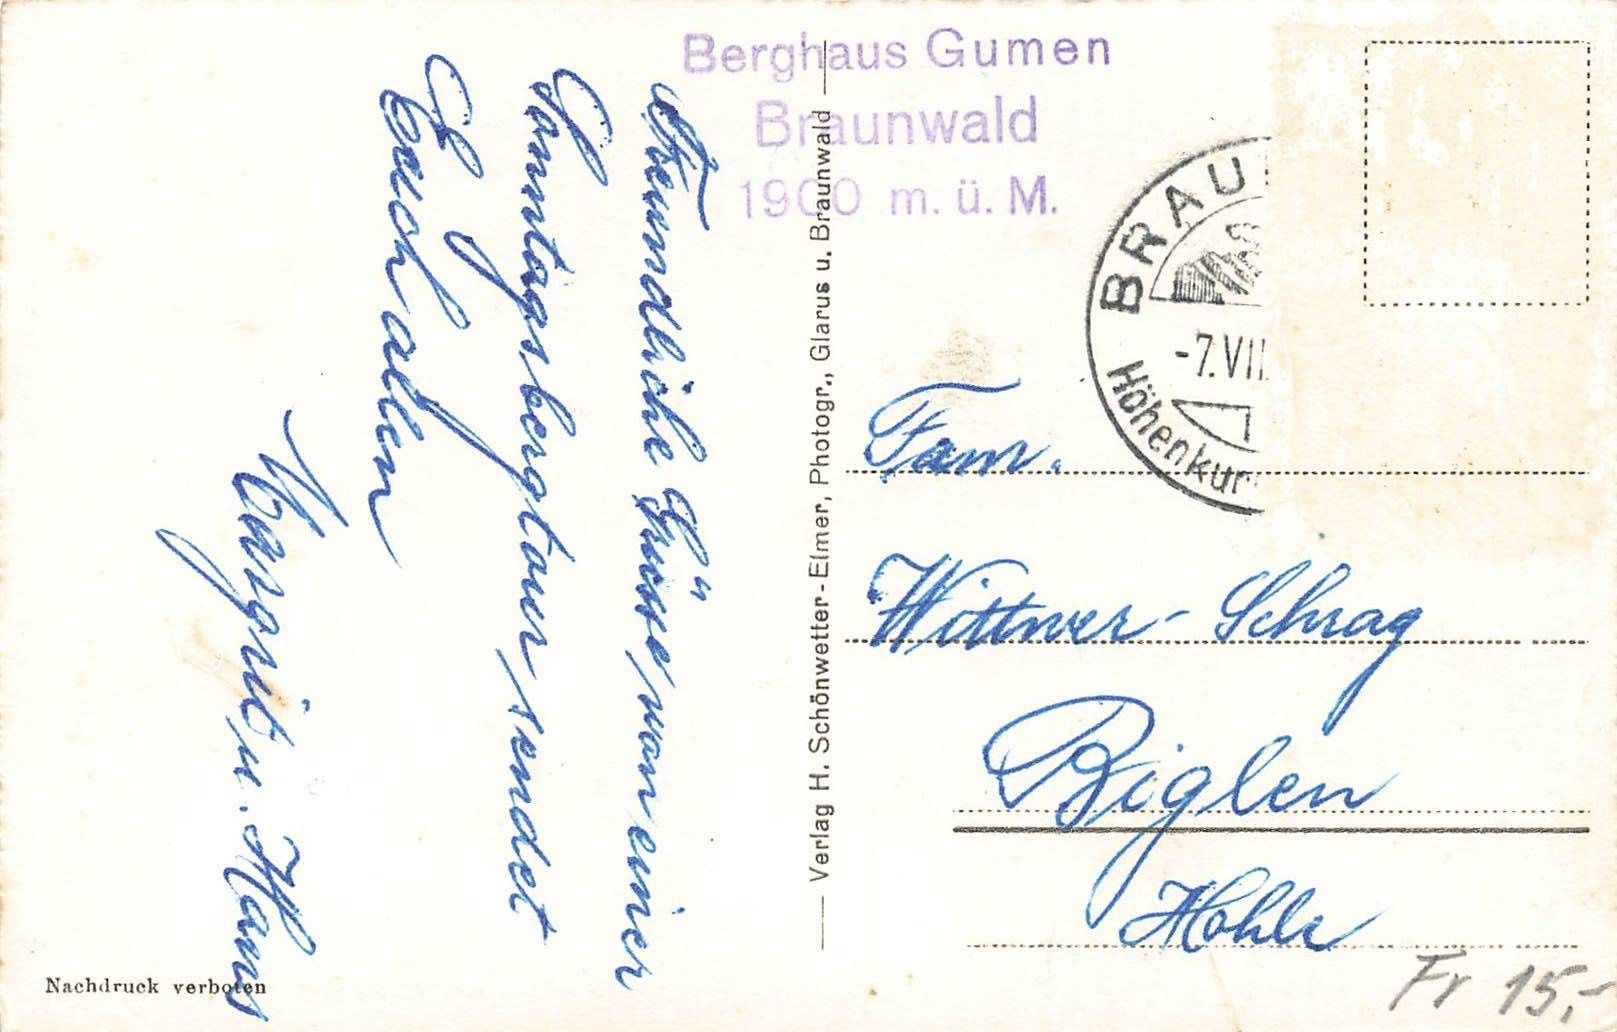 Berghaus Gumen
Braunwald
1900 m. ü. M.
BRAU
-7.VII.
Höhenkur
Freundliche Grüsse von einer
Sonntagsbergtour sendet
Euch allen
Margrit u. Hans
Verlag H. Schönwetter-Elmer, Photogr., Glarus u. Braunwald
Fam.
Wittwer-Schrag
Biglen
Hohle
Nachdruck verboten
Fr 15.-